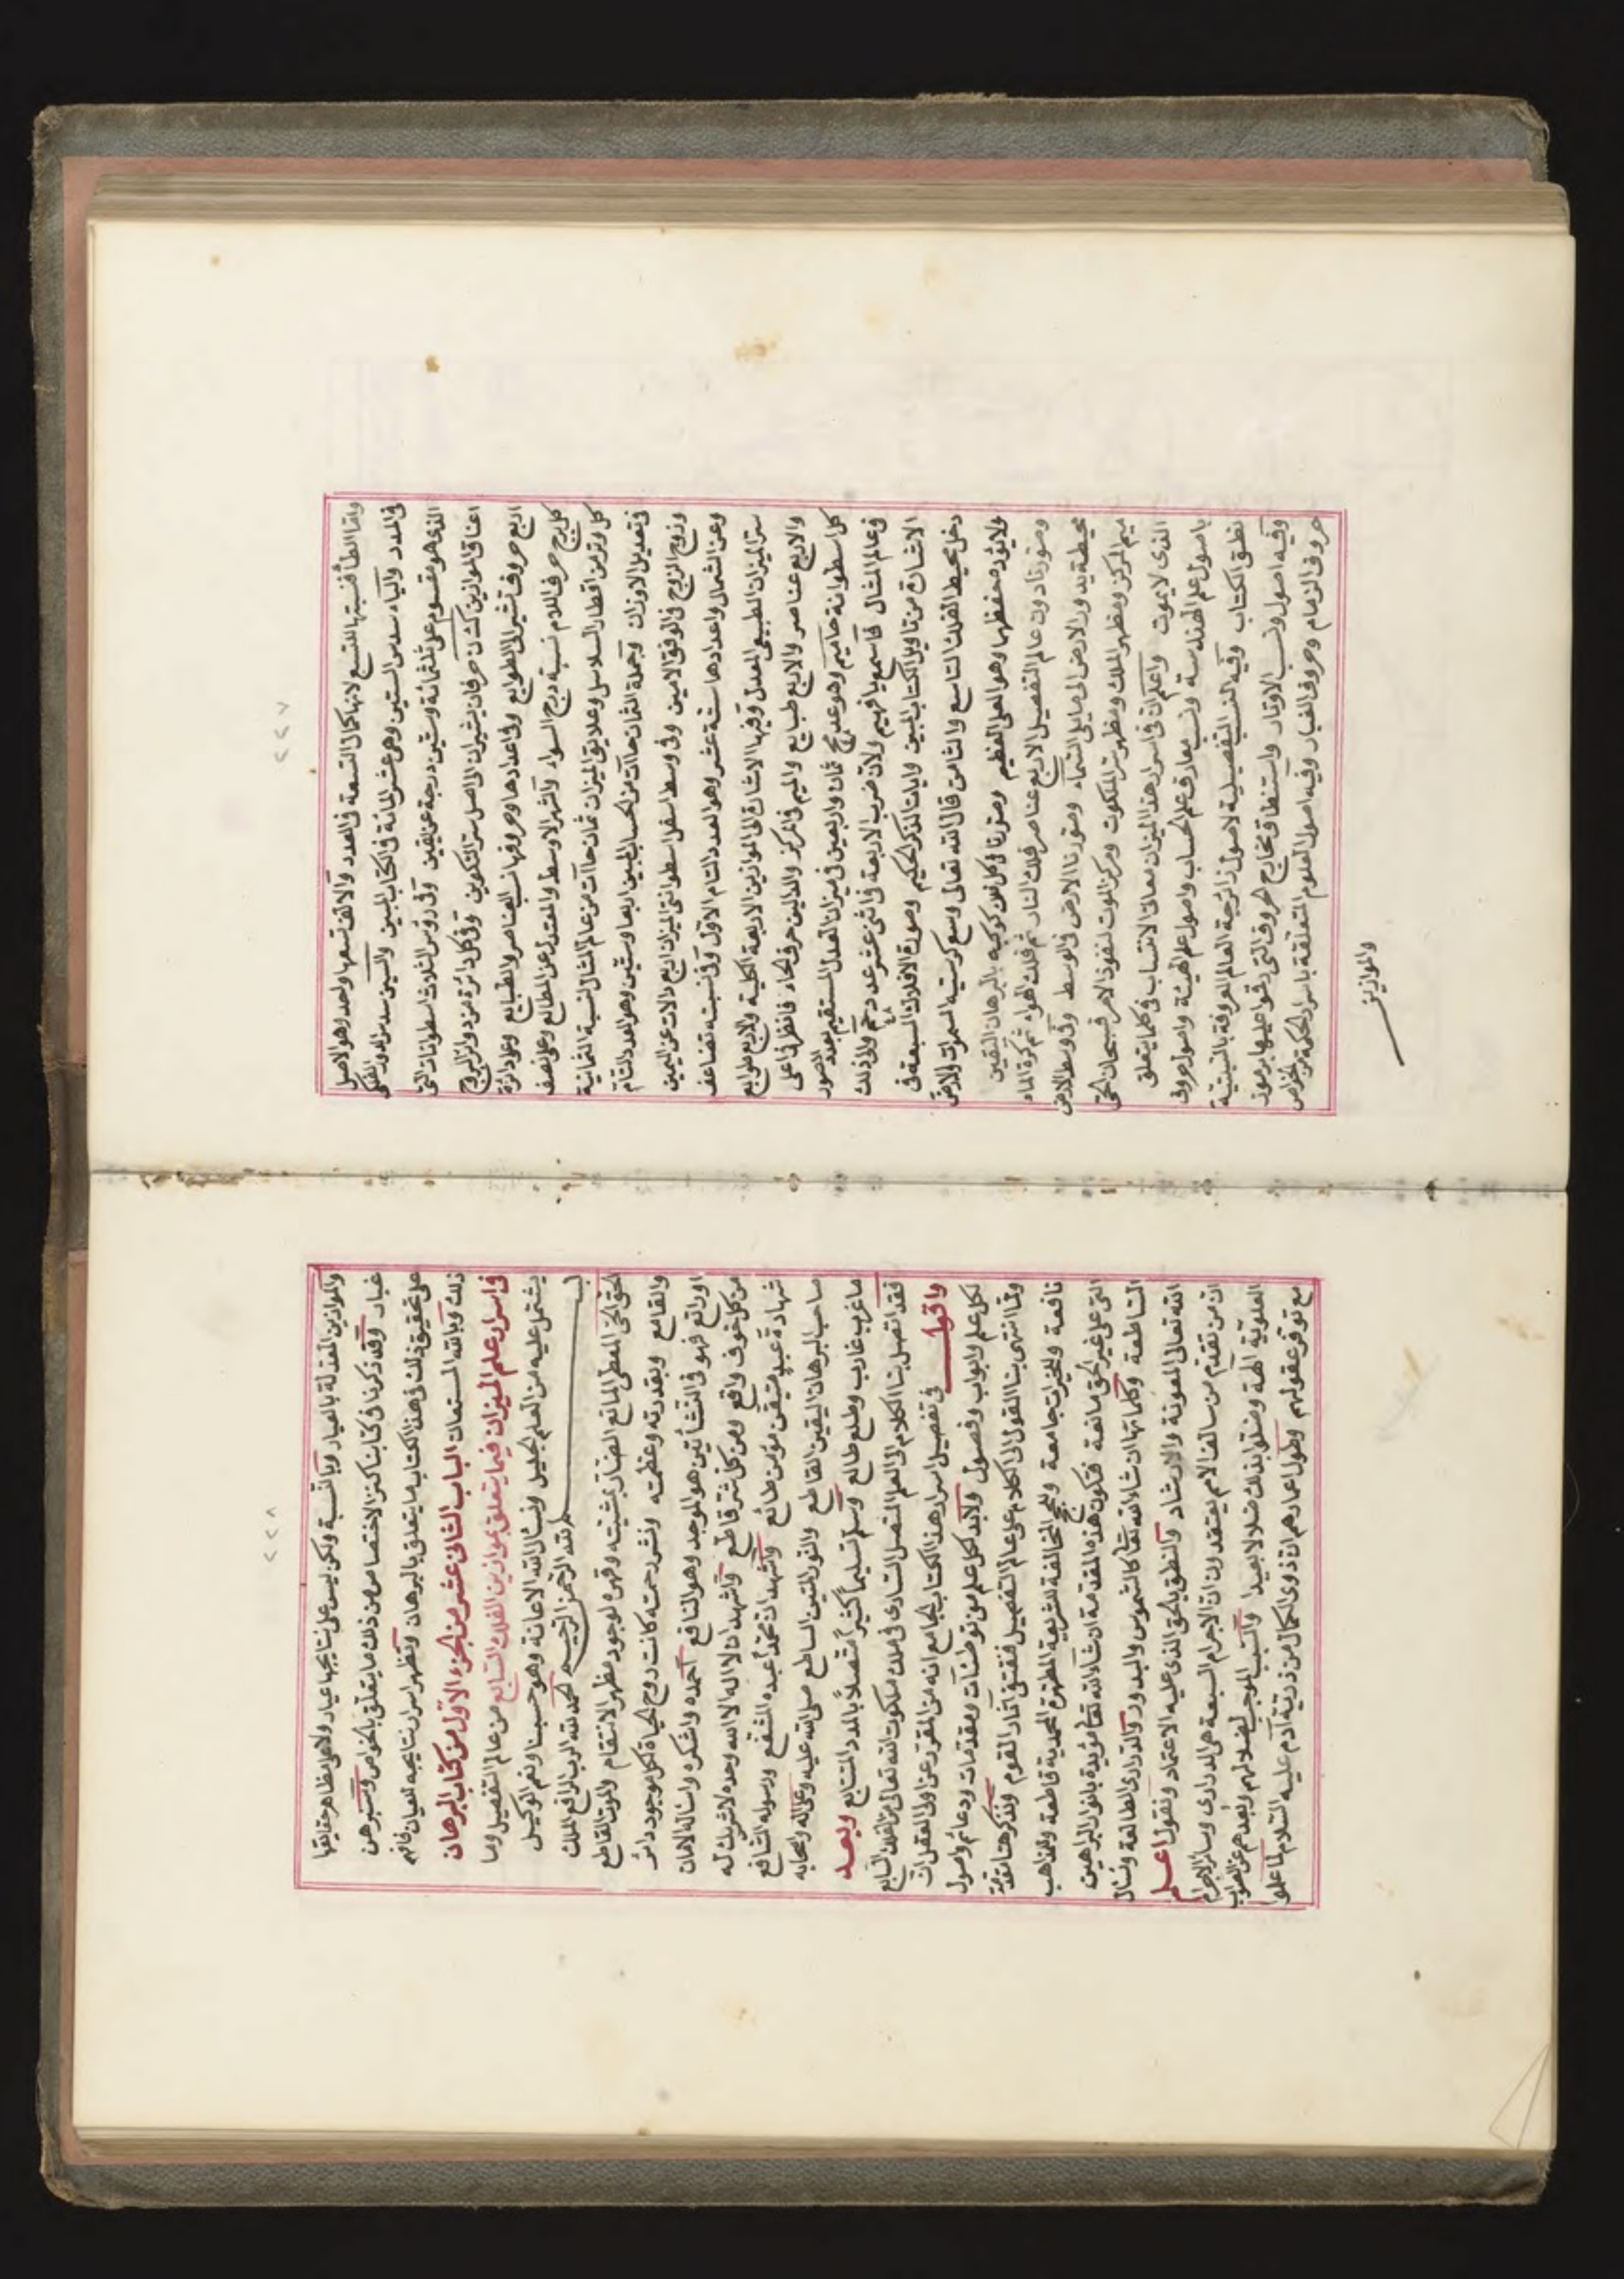 ٢٢٧
واما الطا فنسبتها التسع لانها كمال التسعة فى العدد والالف تسعها واحد وهو الاصل
فى المدد والياء سدس الستين وهى عشر المائة فى الكتاب المبين والسين سدس ادوار الفلك
الذى هو مقسوم على ثلثمائة وستين درجة عن يقين وفى رؤس الثلاث اسطوانات التى
اعناق الموازين كش حرفان يشيران الى اصل سر التكوين وفى كل دائرة من دوائر البروج
اربع حروف تشير الى الطوابع وفى اعدادها وحروفها نسب العناصر والطبايع وعدد دائرة
كل برج حرف اللام نسبته درج السواء والشهر الاوسط والمعتدل عن المطالع وعن نصف
كل وتر من اقطار السلاسل وعلايق الميزان ثمان حاآت من عالم المثال لنسبة الثمانية
فى تعديل الاوزان وجملة الثمان حاآت من الحساب المبين اربعا وستين وهو العدد التام
وزوج الزوج فى الوفق الامين وفى وسط اسفل اسطوانتى الميزان اربع دالات عن اليمين
وعن الشمال واعدادها ستة عشر وهو العدد التام الاول وفى نسبته تضاعف
ستر الميزان الطبيعى المعدل وفيها الاشارة الى الموازين الاربعة الكلية والاربع طوابع
والاربع عناصر والاربع طبايع والميم فى المركز والدالين حرفى الحاء فانظر فى اعلى
كل اسطوانة حاميم وهو عدد مح ثمان واربعين فى ميزان العدل المستقيم بعدد الصور
فى عالم المثال فاسمع يا فهيم ولان ضرب الاربعة فى اثنى عشر عدد مح ٤٨ ولان ذلك
الاشارة من تاويل الكتاب المبين وايات الذكر الحكيم وصورة الافلاك السبعة فى
دخل محيط الفلك التاسع والثامن قال الله تعالى وسع كرسيه السموات والارض
ولا يؤده حفظهما وهو العلى العظيم وصورنا فى كل فلك كوكبه بالبرهان اليقين
وصورنا دون عالم التفصيل الاربع عناصر فلك النار ثم فلك الهواء ثم كرة الماء
محيطة بدور الارض الى ما يلى السماء وصورنا الارض فى الوسط وفى وسط الارض
ميم المركز ومظهر الملك ومظهر سر الملكوت ومركز الموت لنفوذ الامر فسبحان الحى
الذى لا يموت واعلم ان فى اسرار هذا الميزان معانى الانتساب فى كلما يتعلق
باصول علم الهندسة ونسب معارف علم الحساب واصول علم الهيئة واصول حروف
نطق الكتاب وفيه النسب التفصيلية لاصول زائرجة العالم المعروفة بالسبتية
وفيه اصول ونسب الاوتار واستنطاق مخارج الحروف التى وقوا عليها برموز
حروف الزمام وحروف الغبار وفيه اصول العلوم المتعلقة باسرار الحكمة والخواص
والموازين
٢٢٨
والموازين المعتدلة بالعيار وبالنسبة ولكن ليس على نتايجها عيار ولا على مظاهر حقايقها
غبار وقد ذكرنا فى كتاب كنز الاختصاص من ذلك ما يتعلق بالخواص وستبرهن
على تحقيق ذلك فى هذا الكتاب ما يتعلق بالبرهان وتظهر اسرار نتايجه للعيان فافهم
ذلك وبالله المستعان الباب الثانى عشر من الجزء الاول من كتاب البرهان
فى اسرار علم الميزان فيما يتعلق بموازين الفلك السابع من عالم التفصيل وما
يشتمل عليه من العلم الجليل ونسأل الله الاعانة وهو حسبنا ونعم الوكيل
بسم الله الرحمن الرحيم الحمد لله الرب الرافع الملك
الحق الحى المعطى المانع الضار بمشيئته وقهره لوجود مظهر الانتقام والموت القاطع
والقامع وبقدرته وعظمته ونشر رحمته كانت روح الحياة لكل موجود دائر
اوراتع فهو فى النشأتين هو الموجد وهو النافع احمده واشكره واساله الامان
من كل خوف واقع ومن كل شر قاطع واشهد ان لا اله الا الله وحده لا شريك له
شهادة عبد متيقن مؤمن طائع واشهد ان محمدا عبده المشفع ورسوله الشافع
صاحب البرهان اليقين القاطع والنور المتين الساطع صلى الله عليه وعلى آله واصحابه
ما غرب غارب وطلع طالع وسلم تسليما كثيرا متصلا بالمدد المتتابع وبعد
فقد اتصل بنا الكلام الى العلم المتصل السارى فى ملك ملكوت الله تعالى من الفلك السابع
واقول فى تفصيل اسرار هذا الكتاب الجامع انه من المقرر عن اولى العقل ان
لكل علم وابواب وفصول ولابد لكل علم من توطئات ومقدمات ودعائم واصول
ولما انتهى بنا القول الى الكلام على عالم التفصيل فنقتفى آثار القوم ونذكر هنا مقدمة
نافعة ولخيرات جامعة ولحجج المخالفة للشريعة المطهرة المحمدية قاطعة ولمذاهب
التى على غير الحق مانعة فتكون هذه المقدمة ان شاء الله تعالى مؤيدة بانوار البراهين
الساطعة وكلماتها ان شاء الله تعالى كالشموس والبدور والدرارى الطالعة ونسأل
الله تعالى المعونة والارشاد والنطق بالحق الذى عليه الاعتماد ونقول اعلم
ان من تقدم من سالف الامم يعتقدون ان الاجرام السبعة هى الدرارى وساير الاجرام
العلوية الهة وضلوا بذلك ضلالا بعيدا والسبب الموجب لضلالهم وبعدهم عن الصواب
مع توفر عقولهم وطول اعمارهم ان ذوى الكمال من ذرية آدم عليه السلام لما علموا